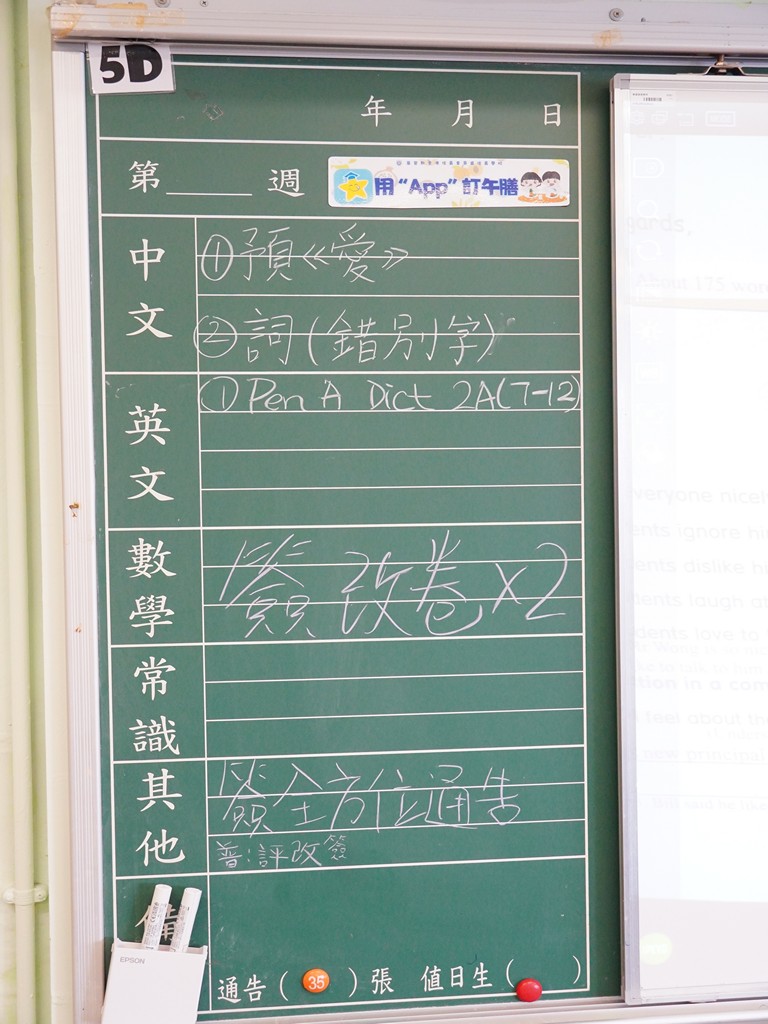 5D
年 月 日
第 週
用“App”訂午膳
中文
①預《愛》
②詞(錯別字)
英文
① Pen A Dict 2A(7-12)
數學
簽改卷x2
常識
其他
簽全方位通告
普:評改簽
備
EPSON
通告( 35 )張 值日生( )
About 175 wor
veryone nicel
ents ignore hi
ents dislike hi
dents laugh at
dents love to
tion in a com
feel about the
new principal